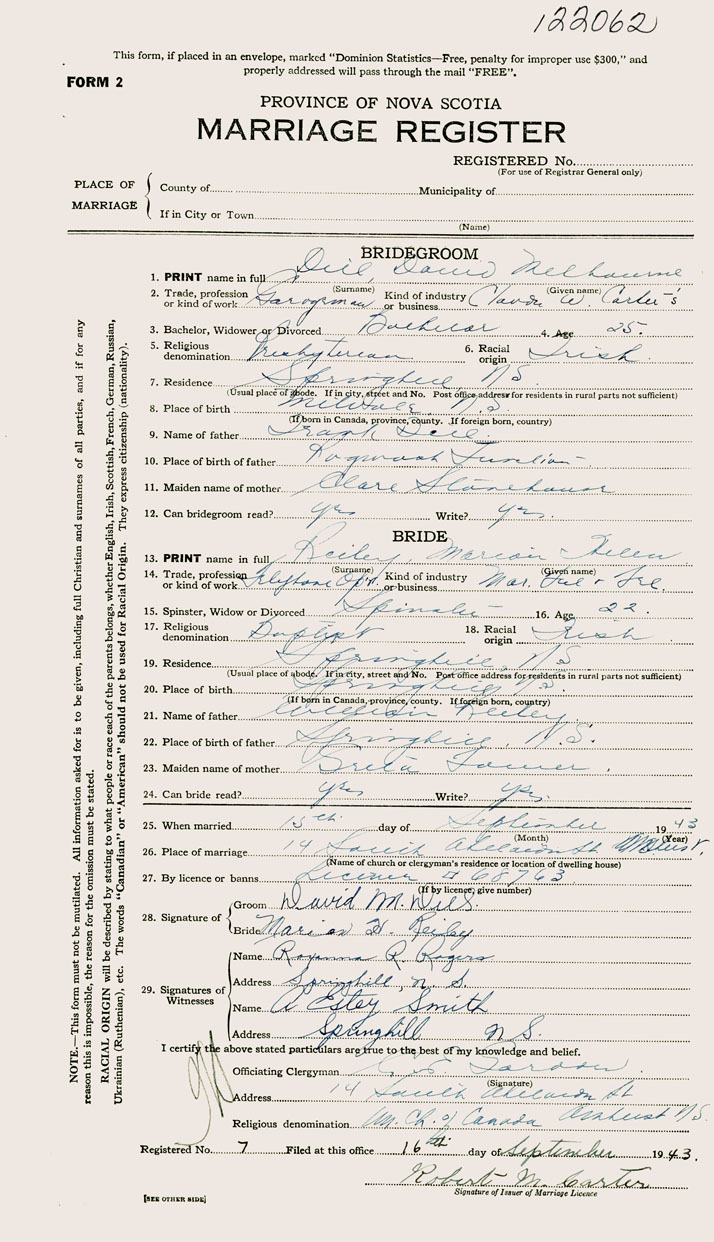 122062
This form, if placed in an envelope, marked "Dominion Statistics—Free, penalty for improper use $300," and
properly addressed will pass through the mail "FREE".
FORM 2
PROVINCE OF NOVA SCOTIA
MARRIAGE REGISTER
REGISTERED No.
(For use of Registrar General only)
PLACE OF MARRIAGE
County of Municipality of
If in City or Town
(Name)
BRIDEGROOM
1. PRINT name in full Dill, David Melbourne
(Surname) (Given name)
2. Trade, profession or kind of work Garageman Kind of industry or business W. Carter's
3. Bachelor, Widower or Divorced Bachelor 4. Age 25.
5. Religious denomination Presbyterian 6. Racial origin Irish.
7. Residence Springhill, N.S.
(Usual place of abode. If in city, street and No. Post office address for residents in rural parts not sufficient)
8. Place of birth N.S
(If born in Canada, province, county. If foreign born, country)
9. Name of father Frank Dill
10. Place of birth of father Junction
11. Maiden name of mother Clare Stonehouse
12. Can bridegroom read? yes Write? yes.
BRIDE
13. PRINT name in full Reiley, Marion Helen
(Surname) (Given name)
14. Trade, profession or kind of work Telephone Op'r. Kind of industry or business Mar. Tel & Tel.
15. Spinster, Widow or Divorced Spinster 16. Age 22.
17. Religious denomination Baptist 18. Racial origin Irish
19. Residence Springhill, N.S
(Usual place of abode. If in city, street and No. Post office address for residents in rural parts not sufficient)
20. Place of birth Springhill N.S.
(If born in Canada, province, county. If foreign born, country)
21. Name of father William Reiley
22. Place of birth of father Springhill, N.S.
23. Maiden name of mother Greta
24. Can bride read? yes Write? yes.
25. When married 15th day of September 1943
(Month) (Year)
26. Place of marriage 14 South Adelaide St Amherst.
(Name of church or clergyman's residence or location of dwelling house)
27. By licence or banns License # 68763
(If by licence, give number)
28. Signature of
Groom David M. Dill.
Bride Marion H. Reiley
29. Signatures of Witnesses
Name R. Rogers
Address Springhill, N.S.
Name A Estey Smith
Address Springhill N.S.
I certify the above stated particulars are true to the best of my knowledge and belief.
Officiating Clergyman
(Signature)
Address 14 South Adelaide St
Religious denomination Un. Ch. of Canada Amherst N.S.
Registered No. 7 Filed at this office 16th day of September 1943.
Robert M. Carter
Signature of Issuer of Marriage Licence
[SEE OTHER SIDE]
NOTE.—This form must not be mutilated. All information asked for is to be given, including full Christian and surnames of all parties, and if for any
reason this is impossible, the reason for the omission must be stated.
RACIAL ORIGIN will be described by stating to what people or race each of the parents belongs, whether English, Irish, Scottish, French, German, Russian,
Ukrainian (Ruthenian), etc. The words "Canadian" or "American" should not be used for Racial Origin. They express citizenship (nationality).